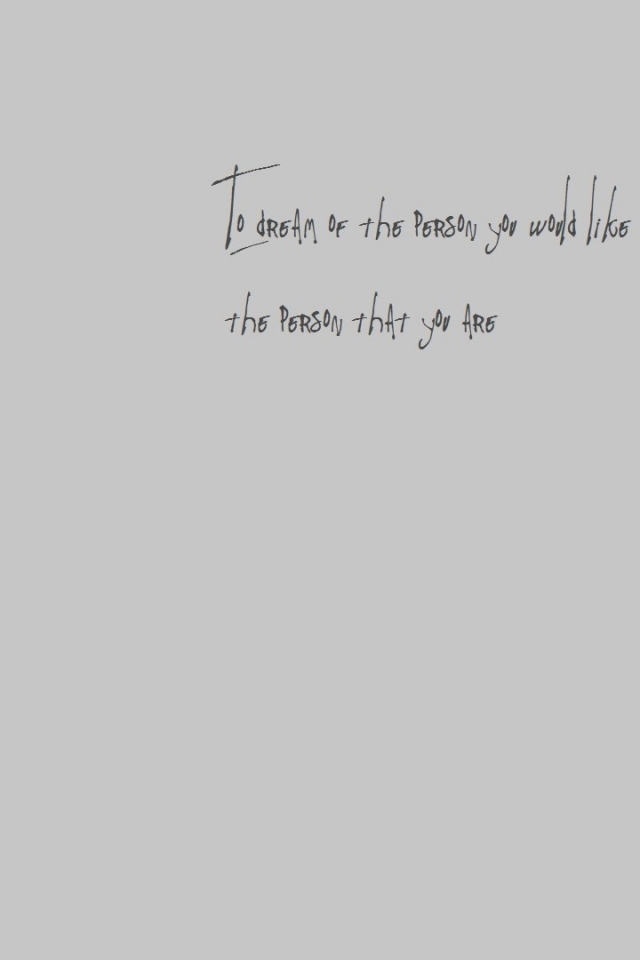 To dream of the person you would like
the person that you are